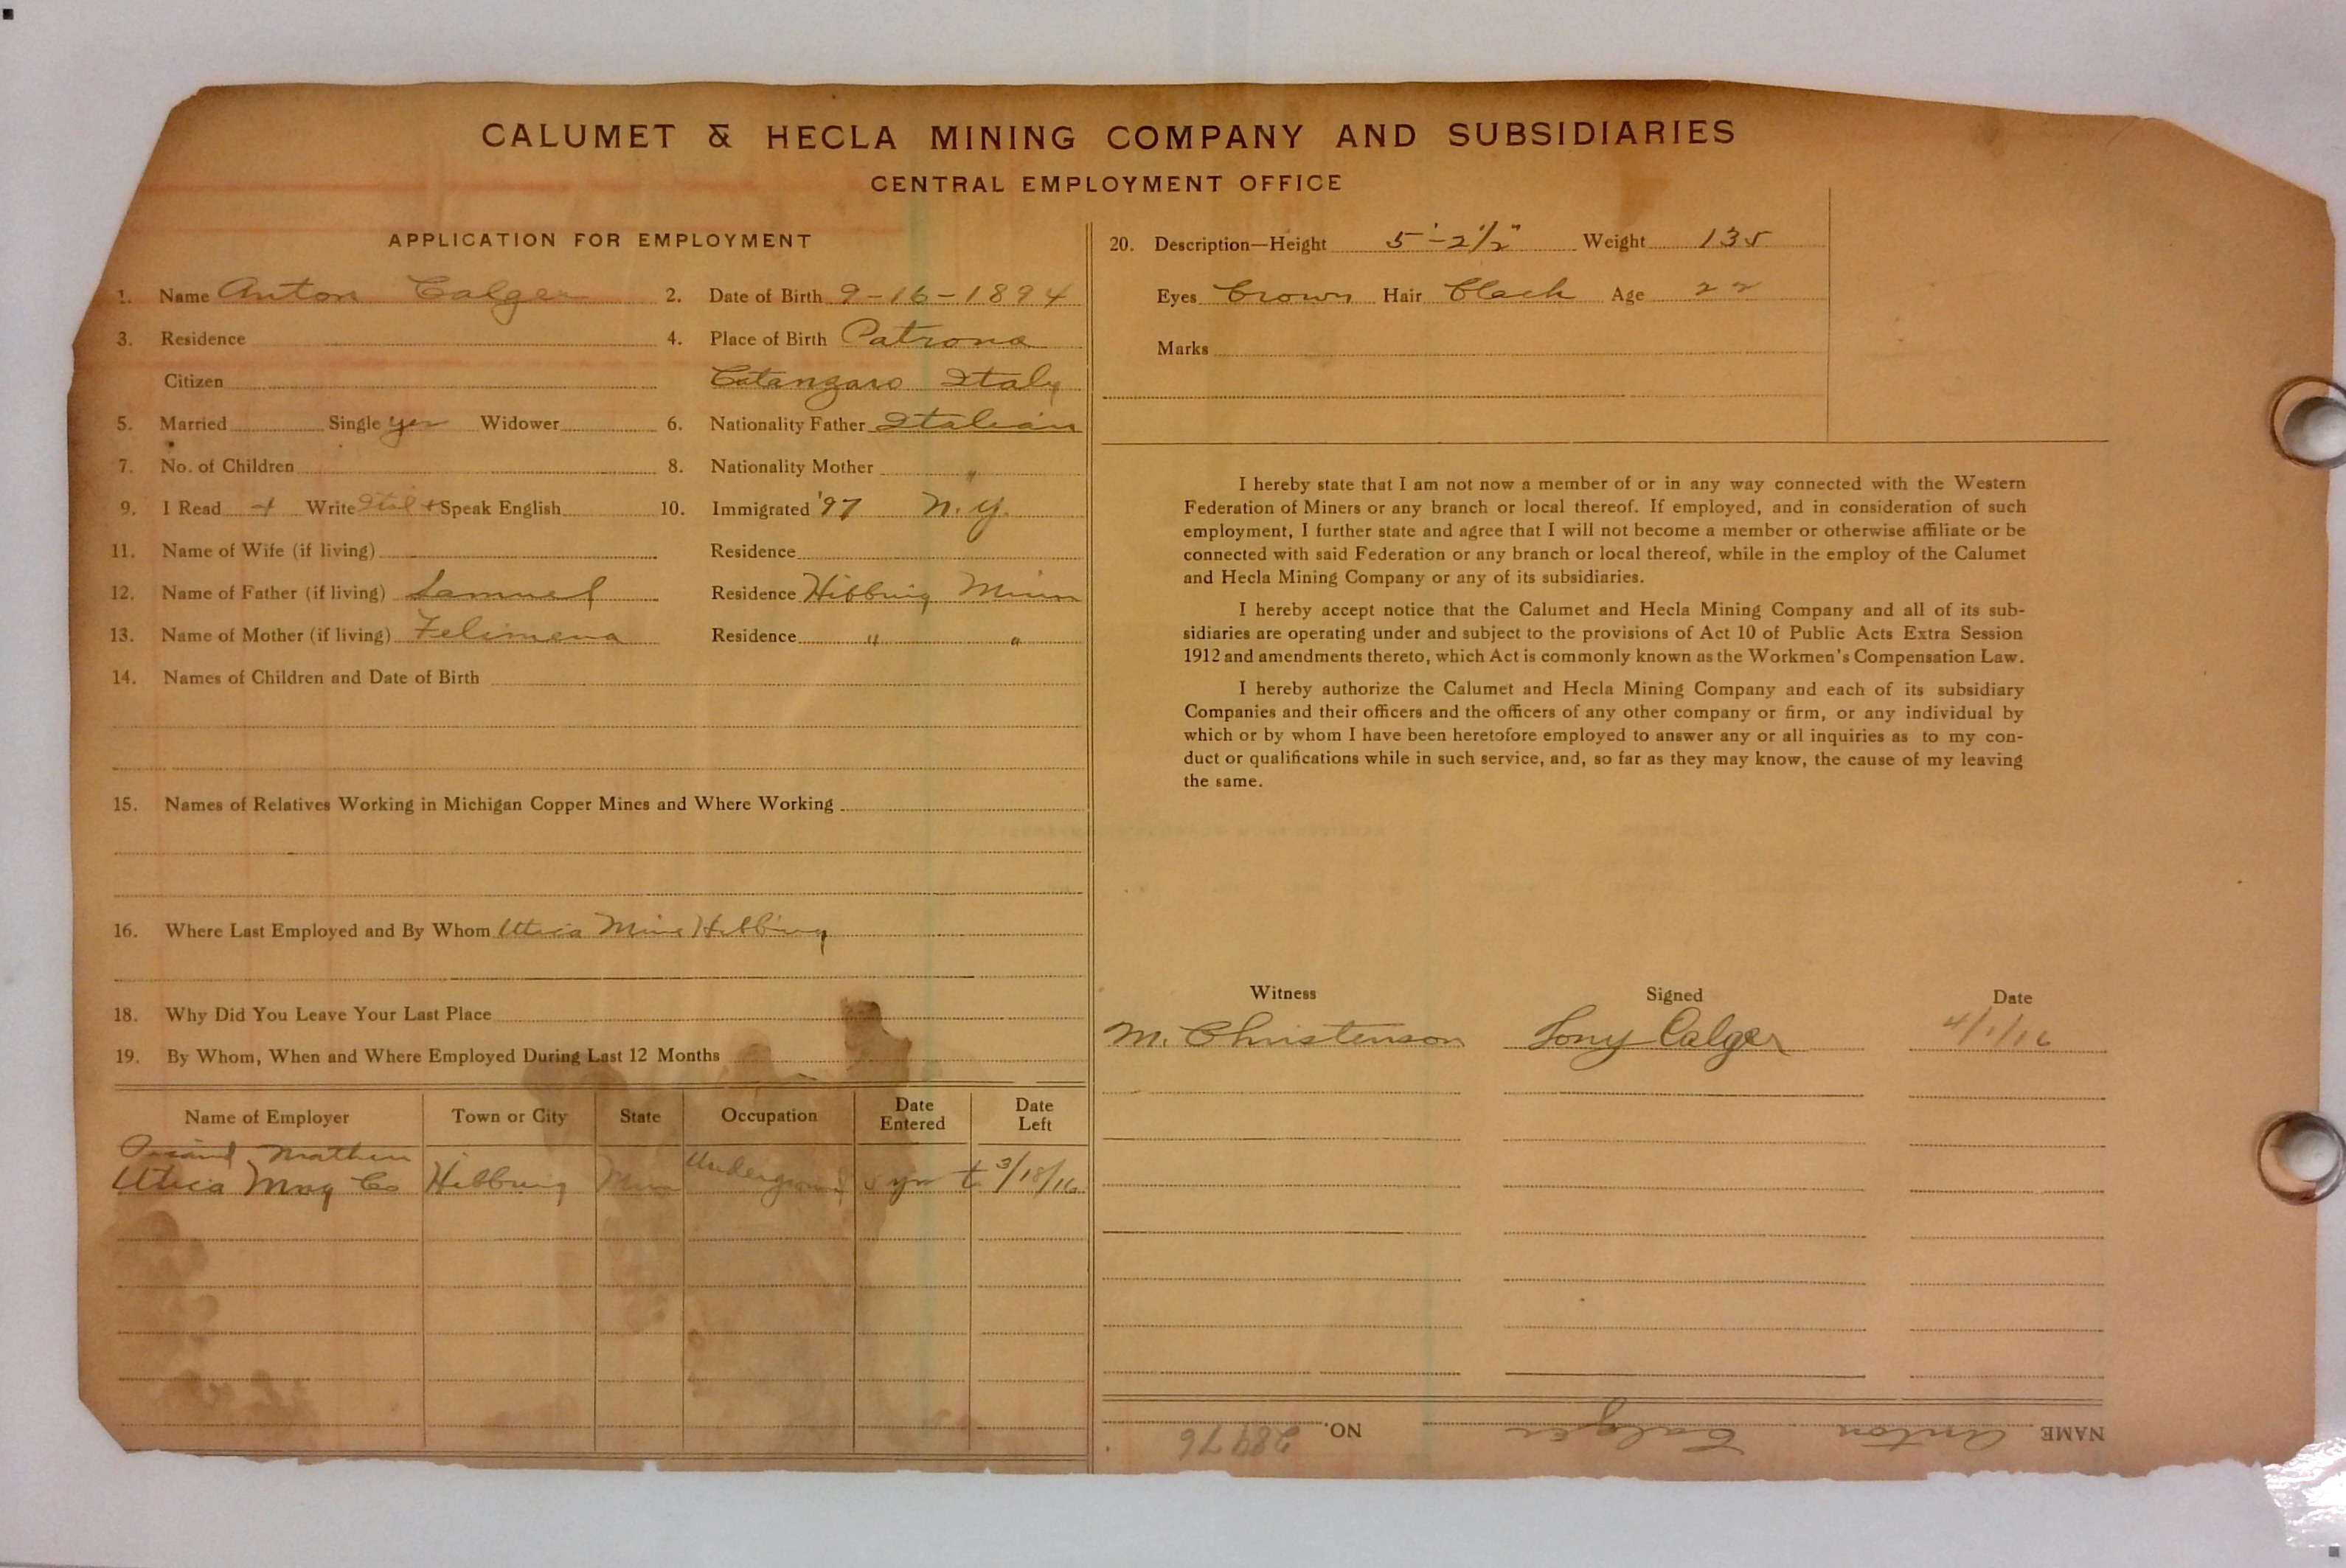 CALUMET & HECLA MINING COMPANY AND SUBSIDIARIES
CENTRAL EMPLOYMENT OFFICE
APPLICATION FOR EMPLOYMENT
1. Name Anton Calger 2. Date of Birth 9-16-1894
3. Residence 4. Place of Birth Patrona
Citizen Catangaro Italy
5. Married Single yes Widower 6. Nationality Father Italian
7. No. of Children 8. Nationality Mother "
9. I Read + Write Ital + Speak English 10. Immigrated '97 N.Y.
11. Name of Wife (if living) Residence
12. Name of Father (if living) Samuel Residence Hibbing Minn
13. Name of Mother (if living) Felimena Residence " "
14. Names of Children and Date of Birth
15. Names of Relatives Working in Michigan Copper Mines and Where Working
16. Where Last Employed and By Whom Utica Mine Hibbing
18. Why Did You Leave Your Last Place
19. By Whom, When and Where Employed During Last 12 Months
Name of Employer Town or City State Occupation Date Entered Date Left
Mathew
Utica Mng Co Hibbing Minn Underground 5 yrs to 3/18/16
20. Description—Height 5'-2½" Weight 135
Eyes Brown Hair Black Age 22
Marks
I hereby state that I am not now a member of or in any way connected with the Western
Federation of Miners or any branch or local thereof. If employed, and in consideration of such
employment, I further state and agree that I will not become a member or otherwise affiliate or be
connected with said Federation or any branch or local thereof, while in the employ of the Calumet
and Hecla Mining Company or any of its subsidiaries.
I hereby accept notice that the Calumet and Hecla Mining Company and all of its sub-
sidiaries are operating under and subject to the provisions of Act 10 of Public Acts Extra Session
1912 and amendments thereto, which Act is commonly known as the Workmen's Compensation Law.
I hereby authorize the Calumet and Hecla Mining Company and each of its subsidiary
Companies and their officers and the officers of any other company or firm, or any individual by
which or by whom I have been heretofore employed to answer any or all inquiries as to my con-
duct or qualifications while in such service, and, so far as they may know, the cause of my leaving
the same.
Witness Signed Date
M. Christenson Tony Calger 4/1/16
NAME Anton Calger NO. 28976